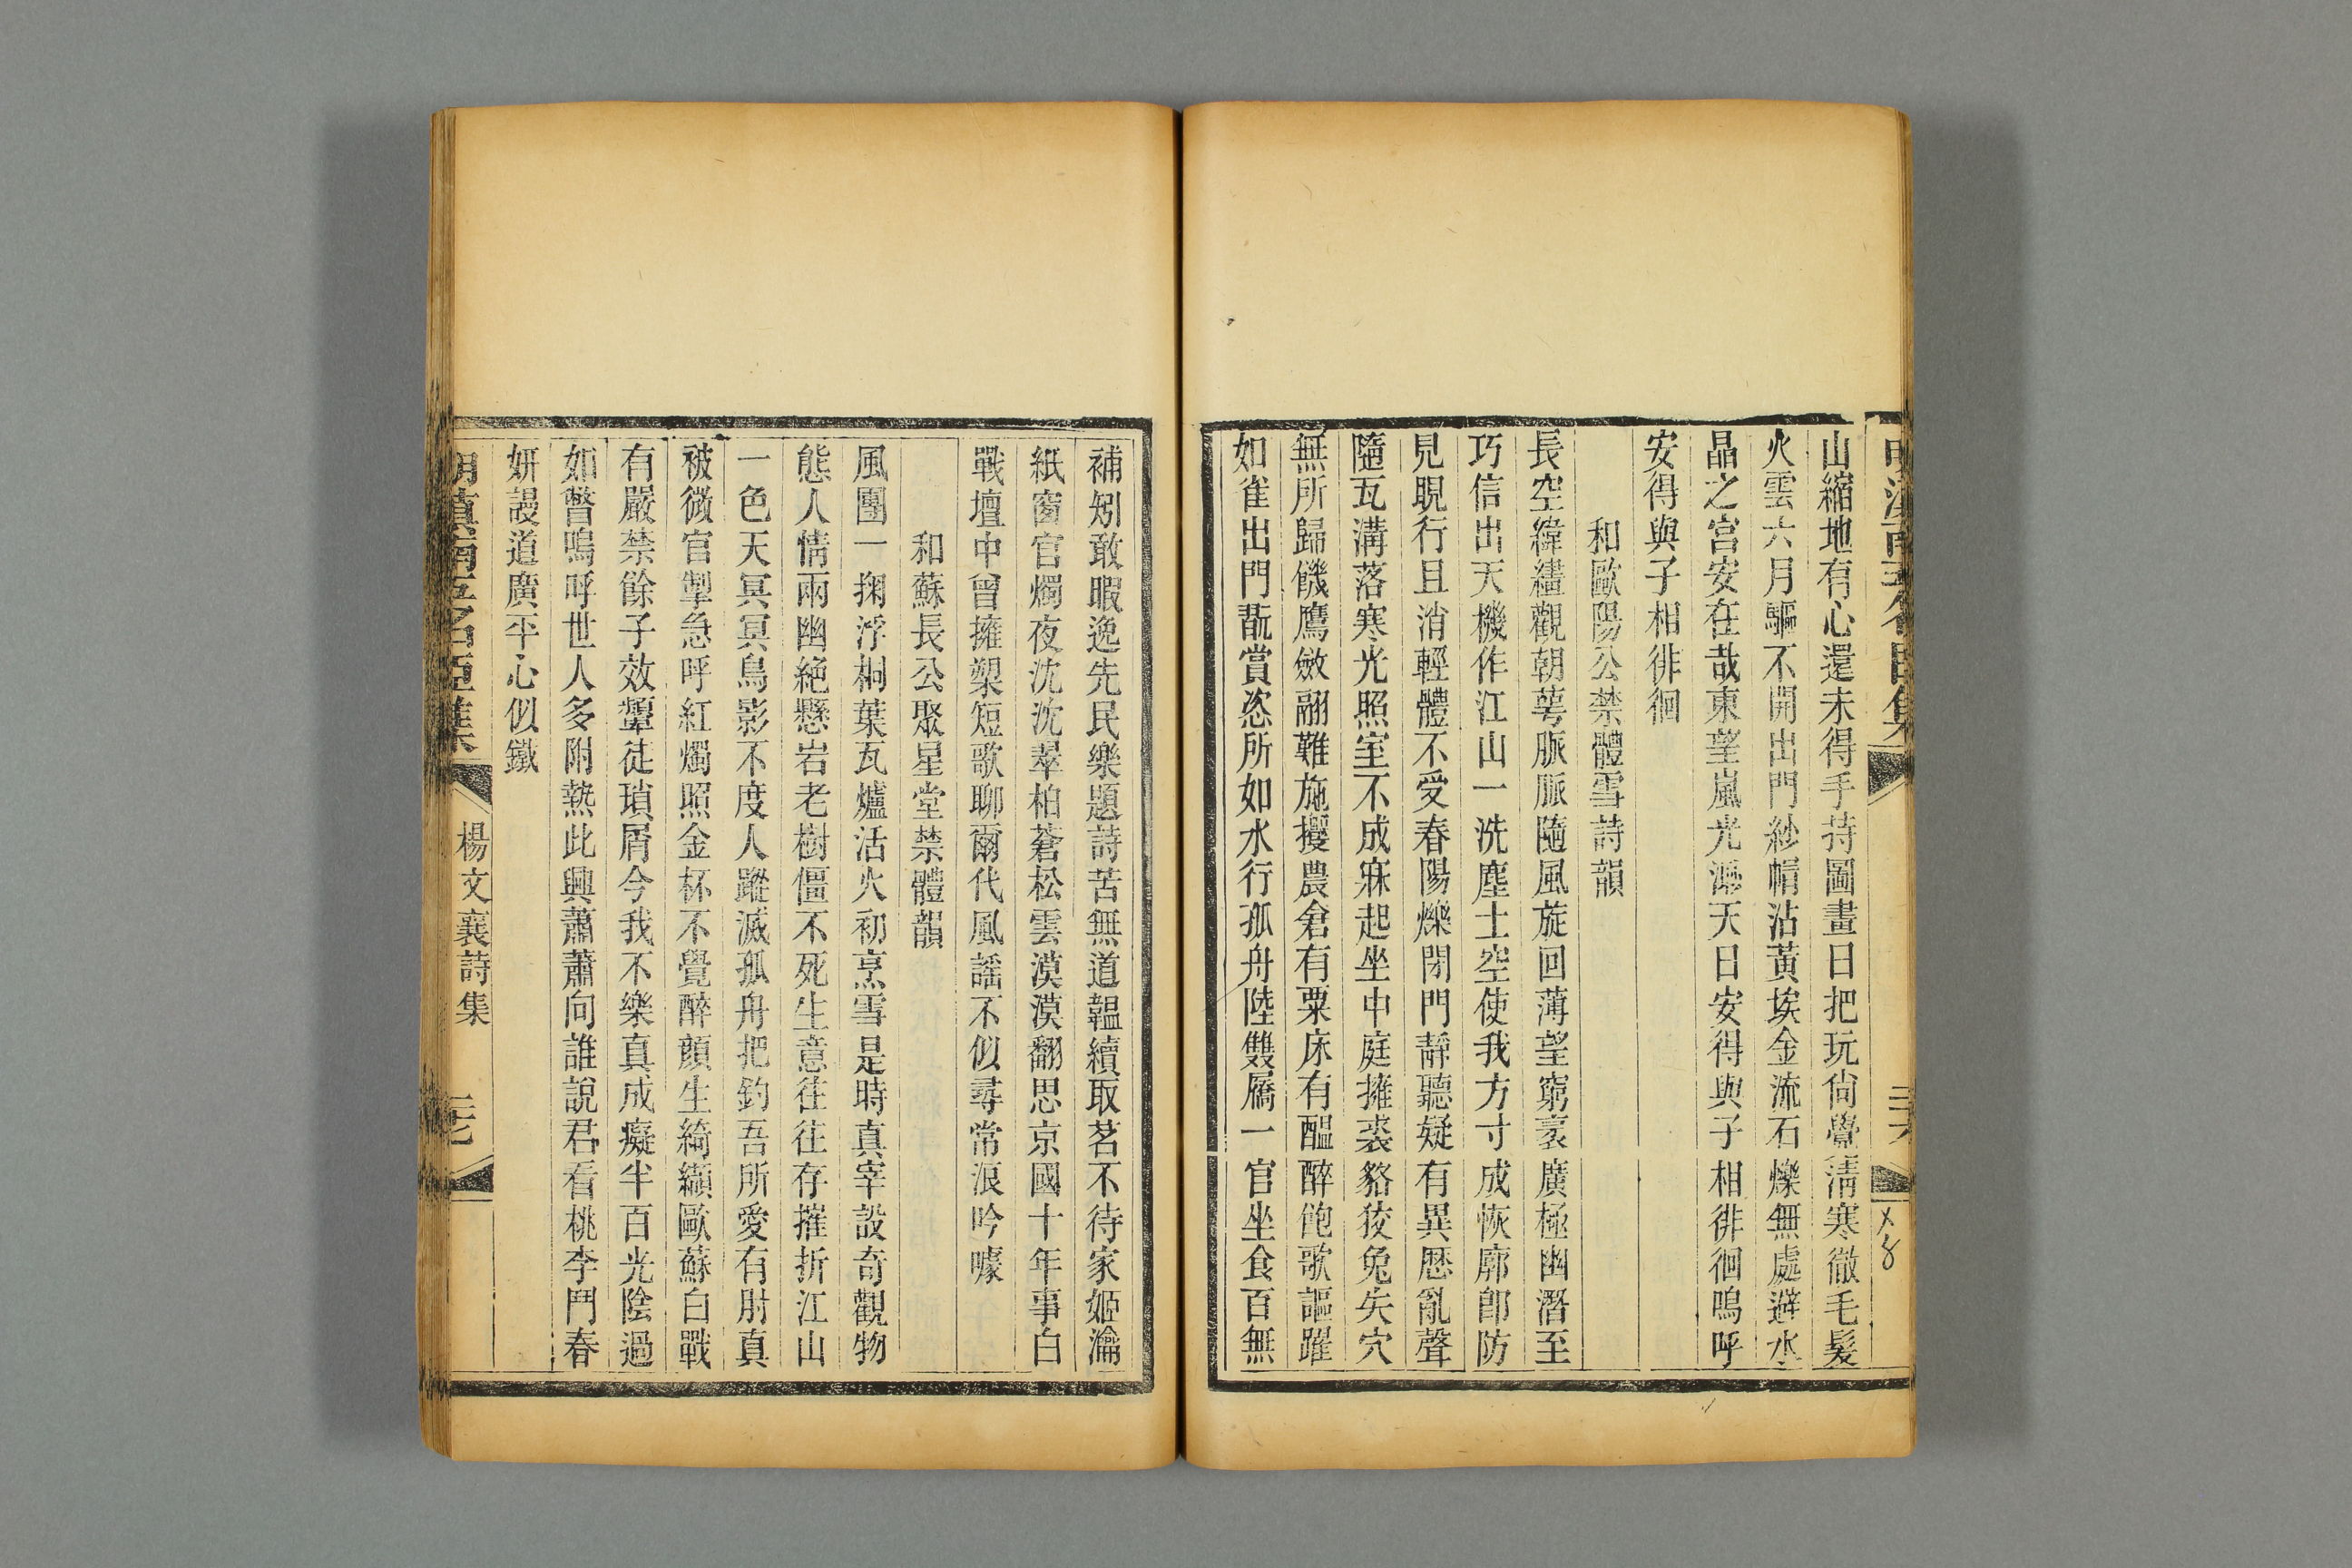 山縮地有心還未得手持圖畫日把玩尙覺淸寒徹毛髮
火雲六月驅不開出門紗帽沾黃埃金流石爍無處避水
晶之宮安在哉東望嵐光漲天日安得與子相徘徊嗚呼
安得與子相徘徊
和歐陽公禁體雪詩韻
長空緯繣觀朝萼脈脈隨風旋回薄望窮袤廣極幽潛至
巧信出天機作江山一洗塵土空使我方寸成恢廓卽防
見晛行且消輕體不受春陽爍閉門靜聽疑有異歷亂聲
隨瓦溝落寒光照室不成寐起坐中庭擁裘貉狡兔失穴
無所歸饑鷹斂翮難施攫農倉有粟床有醞醉飽歌謳躍
如雀出門翫賞恣所如水行孤舟陸雙屩一官坐食百無
補矧敢暇逸先民樂題詩苦無道韞續取茗不待家姬瀹
紙窗官燭夜沈沈翠柏蒼松雲漠漠翻思京國十年事白
戰壇中曾擁槊短歌聊爾代風謠不似尋常浪吟噱
和蘇長公聚星堂禁體韻
風團一掬浮桐葉瓦爐活火初烹雪是時真宰設奇觀物
態人情兩幽絕懸岩老樹僵不死生意往往存摧折江山
一色天冥冥鳥影不度人蹤滅孤舟把釣吾所愛有肘真
被微官掣急呼紅燭照金杯不覺醉顏生綺纈歐蘇白戰
有嚴禁餘子效顰徒瑣屑今我不樂真成癡半百光陰過
如瞥嗚呼世人多附熱此興蕭蕭向誰說君看桃李鬥春
妍謾道廣平心似鐵
楊文襄詩集